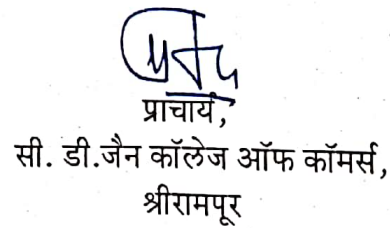 प्राचार्य,
सी. डी.जैन कॉलेज ऑफ कॉमर्स,
श्रीरामपूर